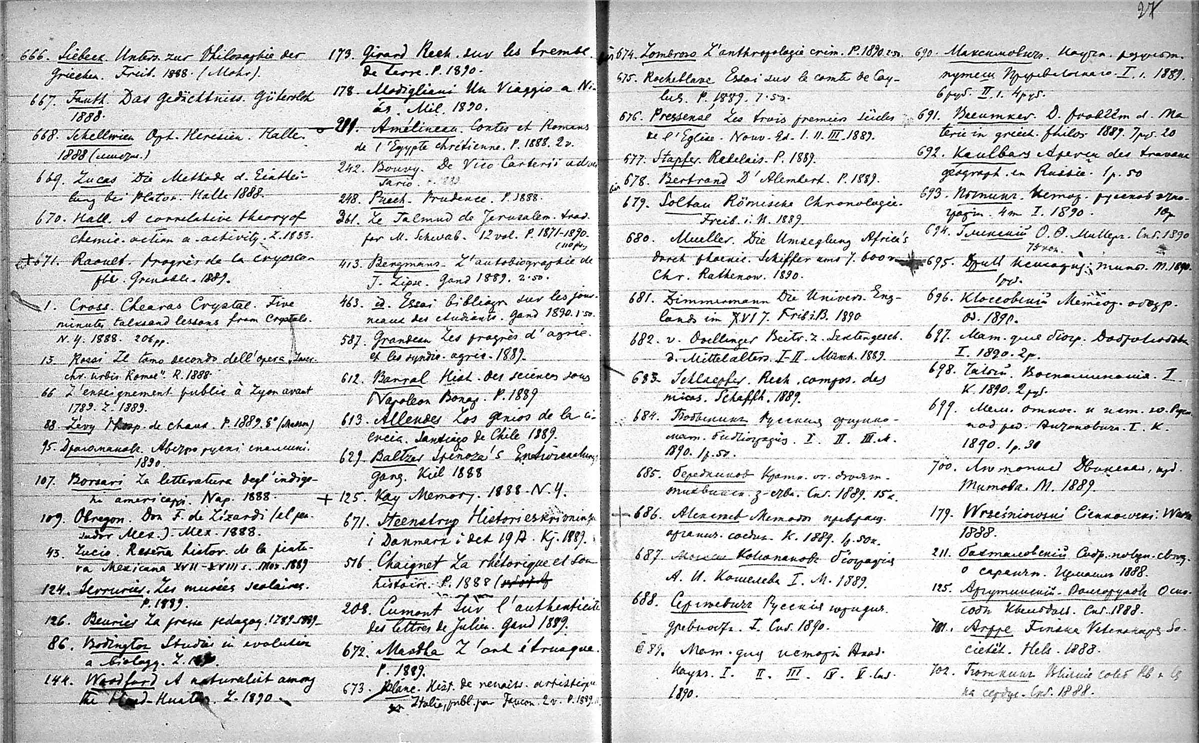 27
666. Siebeck Unters. zur Philosophie der
Griechen. Freib. 1888. (Mohr).
667. Fauth. Das Gedächtniss. Gütersloh
1888.
668. Schellwien Opt. Heresien. Halle
1888
669. Lucas Die Methode d. Einthei-
lung bei Platon. Halle 1888.
670. Hall. A correlative theory of
chemic. action a. activity. L. 1888.
+671. Raoult. Progrès de la cryosco-
pie. Grenoble. 1889.
1. Cross. Chearas Crystal. Five
minutes talks and lessons from Crystals.
N. Y. 1888. 206 pp.
15. Rossi Il tomo secondo dell'opera „Inscr.
chr. urbis Romae". R. 1888.
66 L'enseignement public à Lyon avant
1789. L. 1889.
88. Lévy de chaus. P. 1889. 8°
95. Драгоманова.
1890.
107. Borsari La letteratura degl' indige-
ni americani. Nap. 1888.
109. Obregon. Don F. de Lizardi (el pen-
sador Mex.). Mex. 1888.
43. Lucio. Reseña histor. de la pintu-
ra Mexicana XVII-XVIII s. Mex. 1889
124. Serrurier. Les musées scolaires.
P. 1889.
126. Beurier La presse pedagog. 1789-1889.
86. Bodington Studies in evolution
a. biology. L. 1890
144. Woodford A naturalist among
the Head-Hunters. L. 1890.
173. Girard Rech. sur les trembl.
de terre. P. 1890.
178. Modigliani Un Viaggio a Ni-
ás. Mil. 1890.
Amélineau. Contes et Romans
de l'Egypte chrétienne. P. 1888. 2v.
242. Bouvy. De Vico Carterii adver
sario.
248. Puech. Prudence. P. 1888.
361. Le Talmud de Jerusalem. trad.
par M. Schwab. 12 vol. P. 1871-1890.
413. Bergmans. L'autobiographie de
J. Lipse. Gand 1889. 2.50.
463. id. Essai bibliogr. sur les jour-
neaux des étudiants. Gand 1890. 1.50.
587. Grandeau Les progrès d'agric.
et les syndic. agric. 1889.
612. Barral Hist. des sciences sous
Napoleon Bonap. P. 1889
613. Allendes Los genios de la ci-
encia. Santiago de Chile 1889.
629. Baltzer Spinoza's Entwickelungs-
gang. Kiel 1888
+ 125. Kay Memory. 1888. N. Y.
671. Steenstrup Historieskrivningen
i Danmark i det 19 A. Kj. 1889.
576. Chaignet La rhétorique et son
histoire. P. 1888
208. Cumont Sur l'authenticité
des lettres de Julien. Gand 1889.
672. Martha L'art étrusque.
P. 1889.
673. Blanc. Hist. de renaiss. artistique
Italie, publ. par Faucon. 2v. P. 1889.
674. Lombroso L'anthropologie crim. P. 1890. 2.50.
675. Rocheblave Essai sur le comte de Cay-
lus. P. 1889. 7.50.
676. Pressensé Les trois premiers siècles
de l'Eglise. Nouv. ed. I. II. III. 1889.
677. Stapfer Rabelais. P. 1889.
678. Bertrand D'Alembert. P. 1889.
679. Soltau Römische Chronologie.
Freib. i. B. 1889.
680. Mueller. Die Umseglung Afrika's
durch phoenic. Schiffer ums J. 600 v.
Chr. Rathenow. 1890.
681. Zimmermann Die Univers. Eng-
lands in XVI J. Frib. i. B. 1890
682. v. Doellinger Beitr. z. Sektengesch.
d. Mittelalters. I-II. Münch. 1889.
683. Schlaepfer. Rech. compos. des
micas. Schaffh. 1889.
684. Бобынинъ Русская физико-
мат. библіографія. I. II III в.
1890. 1р.50.
685. Бередниковъ Кратк.
Спб. 1889. 15к.
+ 686. Алексеевъ Методы превращ.
органич. соедин. К. 1889. 4р.50к.
687. Колюпановъ Біографія
А. И. Кошелева I. М. 1889.
688. Сергѣевичъ Русскія юридич.
древности. I. Спб. 1890.
689. Мат. для исторіи Акад.
Наукъ. I. II. III. IV. V. Спб.
1890.
690. Максимовичъ. Научн. результ.
путеш. Пржевальскаго. I. 1. 1889.
6 руб. II. 1. 4 руб.
691. Baeumker. D. Problem d. Ma-
terie in griech. Philos 1889. 7 руб. 20
692. Kaulbars Aperçu des travaux
géograph. en Russie. 1р. 50
693. русской
I. 1890.
694. Глинскій О. Ѳ. Миллеръ. Спб. 1890
75 коп.
695. Дрилль М. 1890.
696. Клоссовскій Метеор. обозр.
Од. 1890.
697. Мат. для біогр. Добролюбова
I. 1890. 2р.
698. Галагай Воспоминанія. I.
К. 1890. 2 руб.
699.
под ред. Антоновича. I. К.
1890. 1р. 30
700. Лѣтопись Двинская, изд.
Титова. М. 1889.
179. Wrześniowski Cienkowski. Wars
1888.
211.
о саранчѣ. 1888.
125. Аргутинскій-Долгоруковъ
Спб. 1888.
701. Arppe Finska Vetenskaps So-
cietét. Hels. 1888.
702.
Спб. 1888.